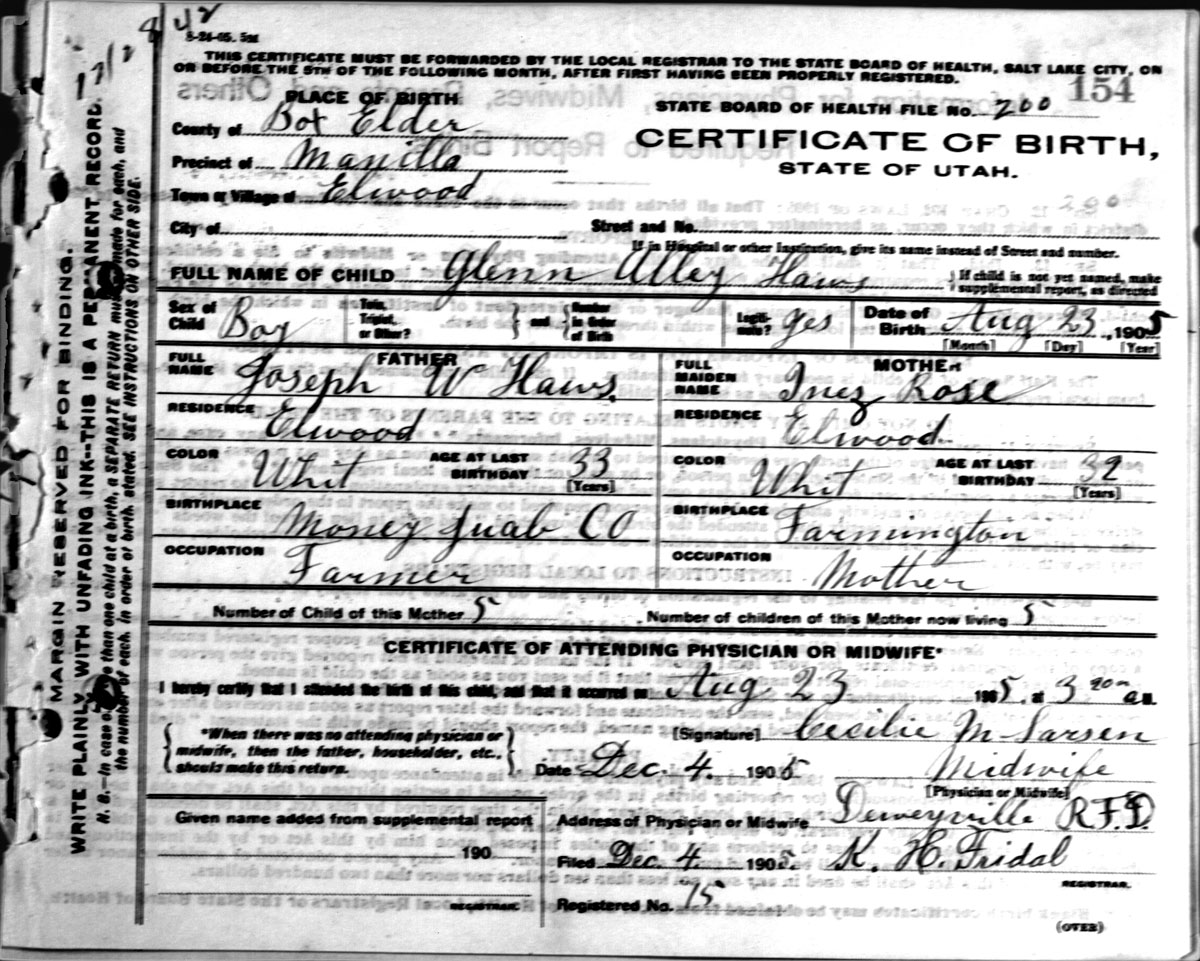 8 42
8-24-05. 5M
THIS CERTIFICATE MUST BE FORWARDED BY THE LOCAL REGISTRAR TO THE STATE BOARD OF HEALTH, SALT LAKE CITY, ON
OR BEFORE THE 5TH OF THE FOLLOWING MONTH, AFTER FIRST HAVING BEEN PROPERLY REGISTERED.
154
PLACE OF BIRTH
STATE BOARD OF HEALTH FILE No. 200
County of Box Elder
CERTIFICATE OF BIRTH,
Precinct of Manilla
STATE OF UTAH.
Town or Village of Elwood
200
City of
Street and No.
If in Hospital or other Institution, give its name instead of Street and number.
FULL NAME OF CHILD Glenn Alley Haws
} If child is not yet named, make
supplemental report, as directed
Sex of Child Boy
Twin, Triplet, or Other? } and { Number in Order of Birth
Legitimate? yes
Date of Birth Aug 23, 1905
[Month] [Day] [Year]
FATHER
FULL NAME Joseph W Haws.
MOTHER
FULL MAIDEN NAME Inez Rose
RESIDENCE Elwood
RESIDENCE Elwood
COLOR Whit AGE AT LAST BIRTHDAY 33 [Years]
COLOR Whit AGE AT LAST BIRTHDAY 32 [Years]
BIRTHPLACE Money Juab CO
BIRTHPLACE Farmington
OCCUPATION Farmer
OCCUPATION Mother
Number of Child of this Mother 5 . Number of children of this Mother now living 5
CERTIFICATE OF ATTENDING PHYSICIAN OR MIDWIFE*
I hereby certify that I attended the birth of this child, and that it occurred on Aug 23 1905. at 3 a M.
{ *When there was no attending physician or
midwife, then the father, householder, etc.,
should make this return. }
[Signature] Cecilie M Larsen
Date Dec. 4. 1905 Midwife
[Physician or Midwife]
Given name added from supplemental report
190
REGISTRAR.
Address of Physician or Midwife Deweyville R.F.D.
Filed Dec. 4 1905. K. H. Fridal
REGISTRAR.
Registered No. 15
(OVER)
MARGIN RESERVED FOR BINDING.
WRITE PLAINLY WITH UNFADING INK--THIS IS A PERMANENT RECORD.
N. B.—In case of more than one child at a birth, a SEPARATE RETURN must be made for each, and
the number of each, in order of birth, stated. SEE INSTRUCTIONS ON OTHER SIDE.